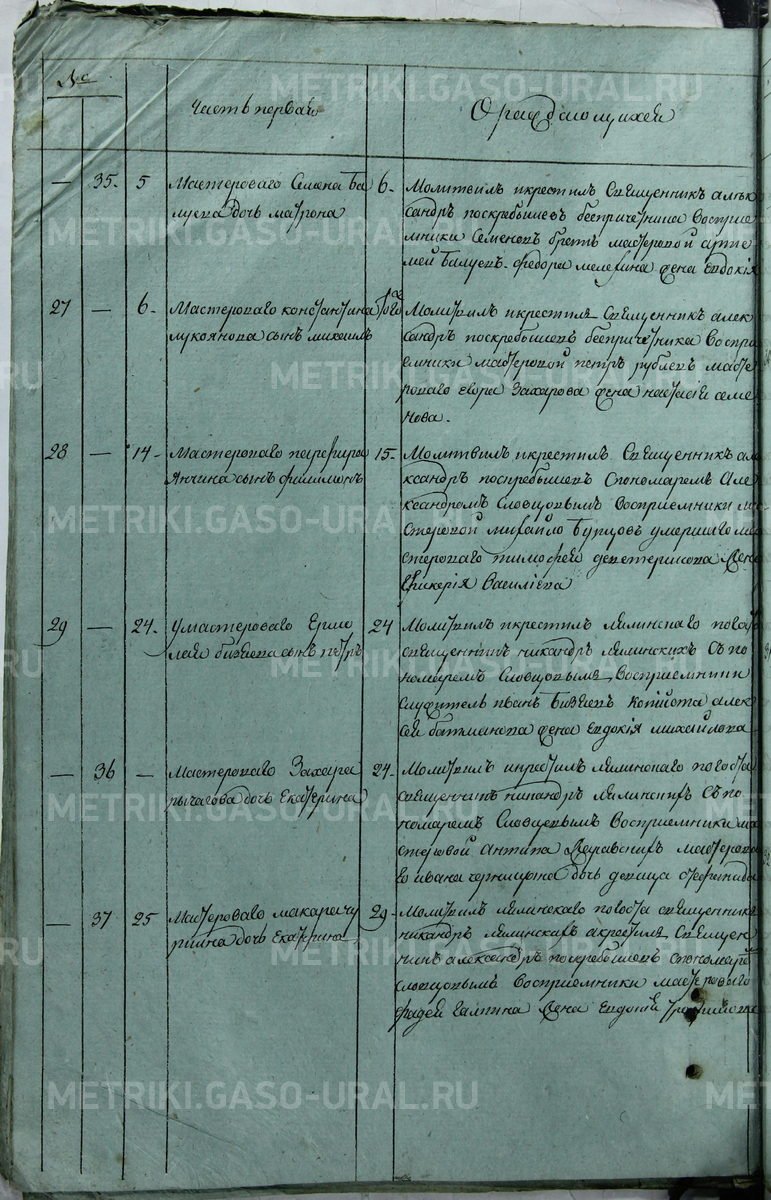 №
Часть первая
О раждающихся
— 35. 5 Мастероваго Семена Ба 6.
луева дочь матрона
Молитвилъ икрестилъ Священникъ алек
сандръ поскребышев безпричетника Восприе
мники Семенов братъ мастеровой арте
мей Балуевъ. федора мелехина жена Евдокія
27 — 6. Мастероваго константина того
лукоянова сынъ михаилъ
Молитвилъ икрестилъ Священникъ алек
сандръ поскребышевъ безпричетника Воспри
емники мастеровой петръ рублевъ масте
роваго Захарова жена настасія семе
нова.
28 — 14. Мастероваго порфира 15.
Янчина сынъ филимонъ
Молитвилъ икрестилъ Священникъ але
ксандръ поскребышевъ Спономаремъ Але
ксандромъ Словцовымъ Восприемники ма
стеровой михайло Бурцовъ умершаго ма
стероваго тимофея жена
гликерія Василіева
29 — 24. Умастероваго Ермо 24
лая бизяева сынъ петръ
Молитвилъ икрестилъ лялинскаго погоста
священникъ никандръ лялинскихъ Спо
номаремъ Словцовымъ Восприемники
служитель иванъ Бизяевъ алек
сея батманова жена Евдокія михайлова
— 36 — Мастероваго Захара 24.
рычагова дочь Екатерина
Молитвилъ икрестилъ лялинскаго погоста
священникъ никандръ лялинскихъ Спо
номаремъ Словцовымъ Восприемники ма
стеровой антипа мастерова
го ивана дочь девица
— 37 25 Мастероваго макара чу 29.
ркина дочь Екатерина
Молитвилъ лялинскаго погоста священникъ
никандръ лялинских акрестилъ Священ
никъ александръ поскребышевъ Спономаре
словцовымъ Восприемники мастероваго
фадея галкина жена Евдокия
METRIKI.GASO-URAL.RU